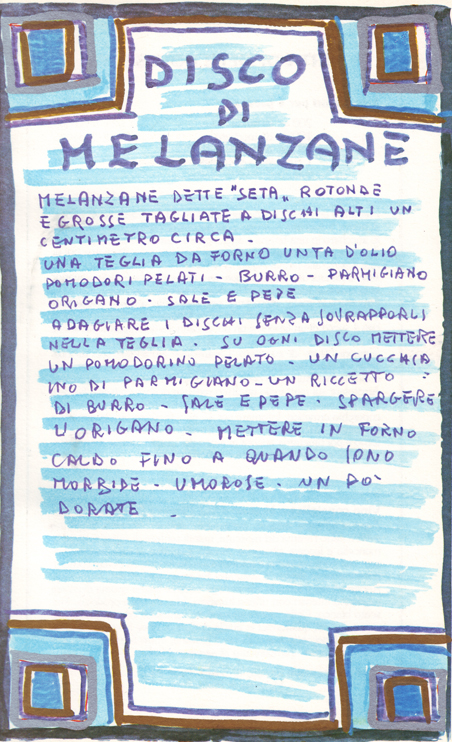 DISCO
DI
MELANZANE
MELANZANE DETTE "SETA„ ROTONDE
E GROSSE TAGLIATE A DISCHI ALTI UN
CENTIMETRO CIRCA -
UNA TEGLIA DA FORNO UNTA D'OLIO
POMODORI PELATI - BURRO - PARMIGIANO
ORIGANO - SALE E PEPE
ADAGIARE I DISCHI SENZA SOVRAPPORLI
NELLA TEGLIA - SU OGNI DISCO METTERE
UN POMODORINO PELATO - UN CUCCHIA
INO DI PARMIGIANO - UN RICCETTO -
DI BURRO - SALE E PEPE - SPARGERE
L'ORIGANO - METTERE IN FORNO
CALDO FINO A QUANDO SONO
MORBIDE - UMOROSE - UN PO'
DORATE -